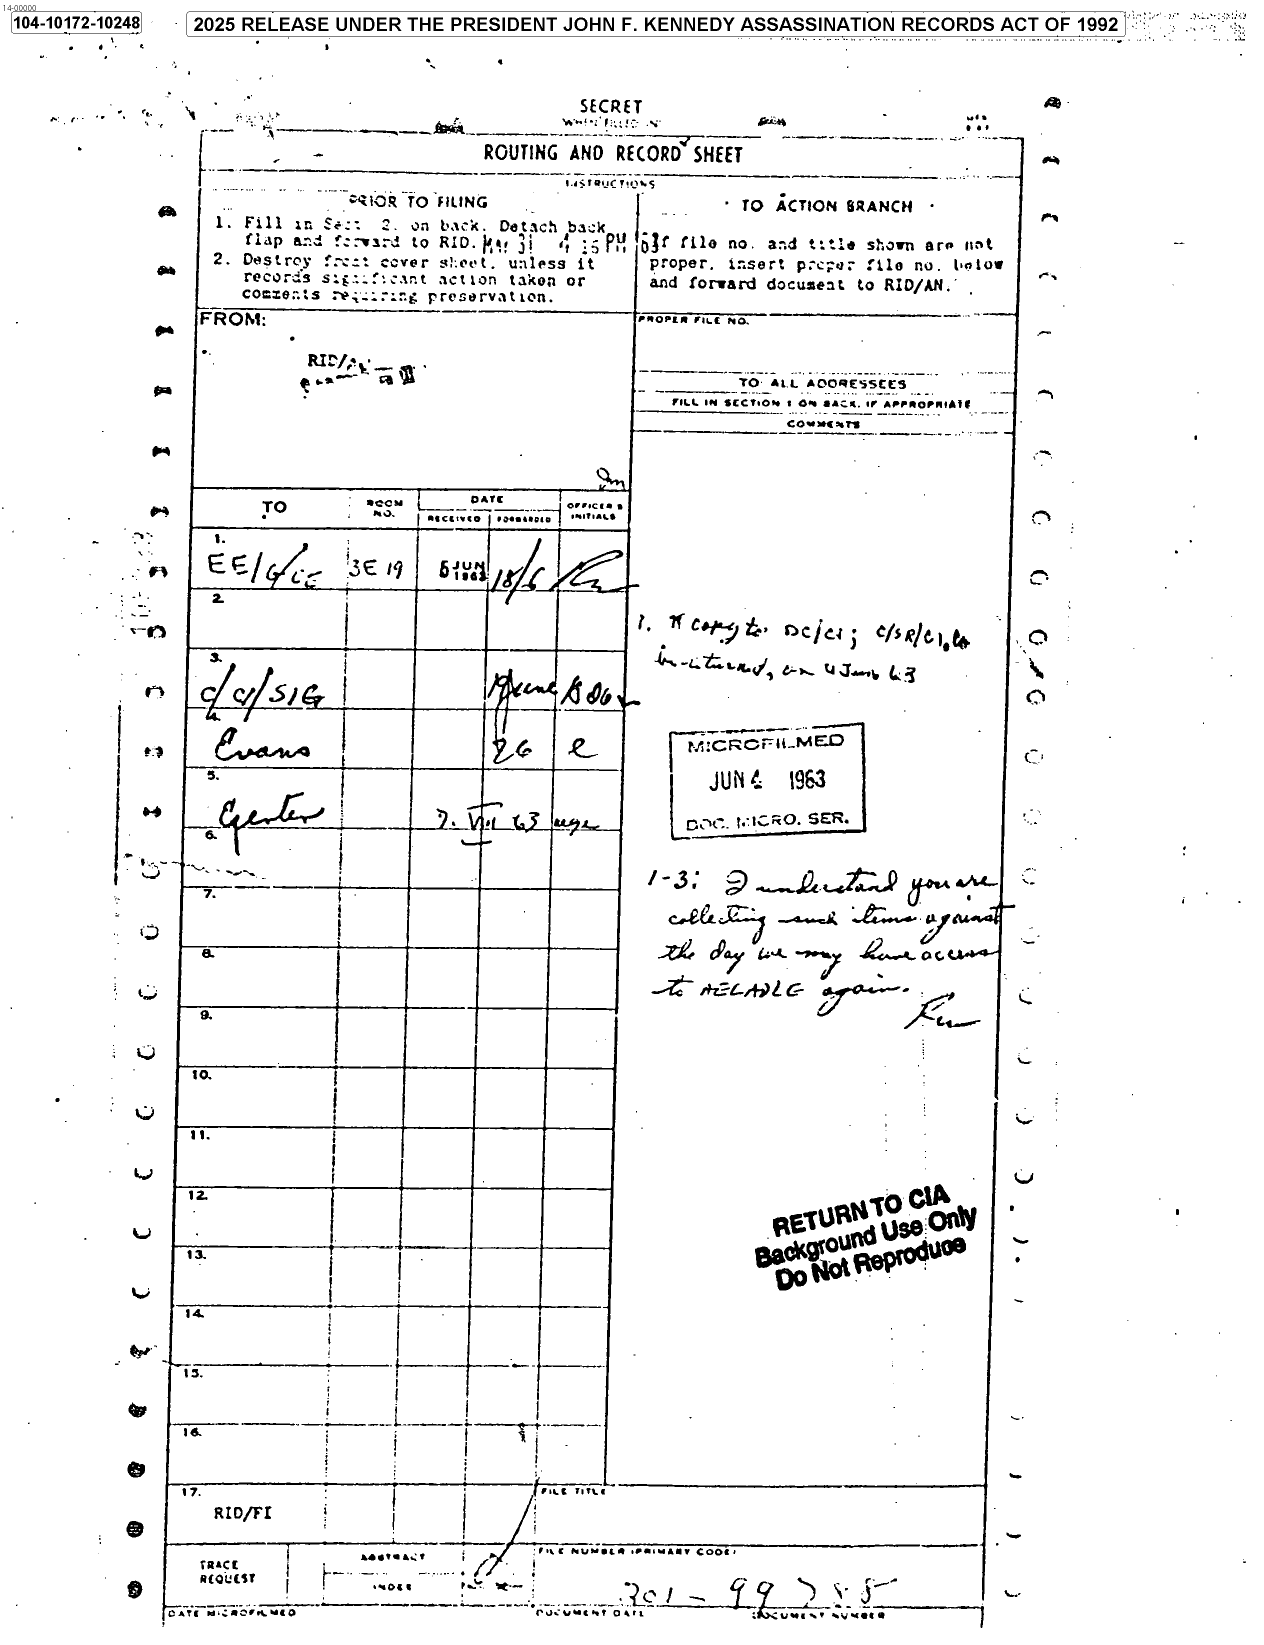 14-00000
104-10172-10248
2025 RELEASE UNDER THE PRESIDENT JOHN F. KENNEDY ASSASSINATION RECORDS ACT OF 1992
SECRET
WHEN FILLED IN
ROUTING AND RECORD SHEET
INSTRUCTIONS
PRIOR TO FILING
1. Fill in Sect. 2. on back. Detach back
flap and forward to RID.
2. Destroy front cover sheet, unless it
records significant action taken or
comments requiring preservation.
MAY 31 4 15 PM '63
TO ACTION BRANCH
If file no. and title shown are not
proper, insert proper file no. below
and forward document to RID/AN.
FROM:
RID/AN
PROPER FILE NO.
TO ALL ADDRESSEES
FILL IN SECTION 1 ON BACK. IF APPROPRIATE
COMMENTS
TO
ROOM NO.
DATE
RECEIVED
FORWARDED
OFFICER'S INITIALS
1.
EE/G/CE 3E 19 5 JUN 1963 18/6
2.
3.
C/CI/SIG
4.
Evans 26 e
5.
Egerter 7. VIII 63
6.
7.
8.
9.
10.
11.
12.
13.
14.
15.
16.
17.
RID/FI
1. copy to DC/CI; C/SR/CI,
4 Jun 63
MICROFILMED
JUN 4 1963
DOC. MICRO. SER.
1-3: I understand you are
collecting such items against
the day we may have access
to AELADLE again.
RETURN TO CIA
Background Use Only
Do Not Reproduce
FILE TITLE
TRACE
REQUEST
ABSTRACT
INDEX
FILE NUMBER (PRIMARY CODE)
201-99785
DATE MICROFILMED
DOCUMENT DATE
DOCUMENT NUMBER